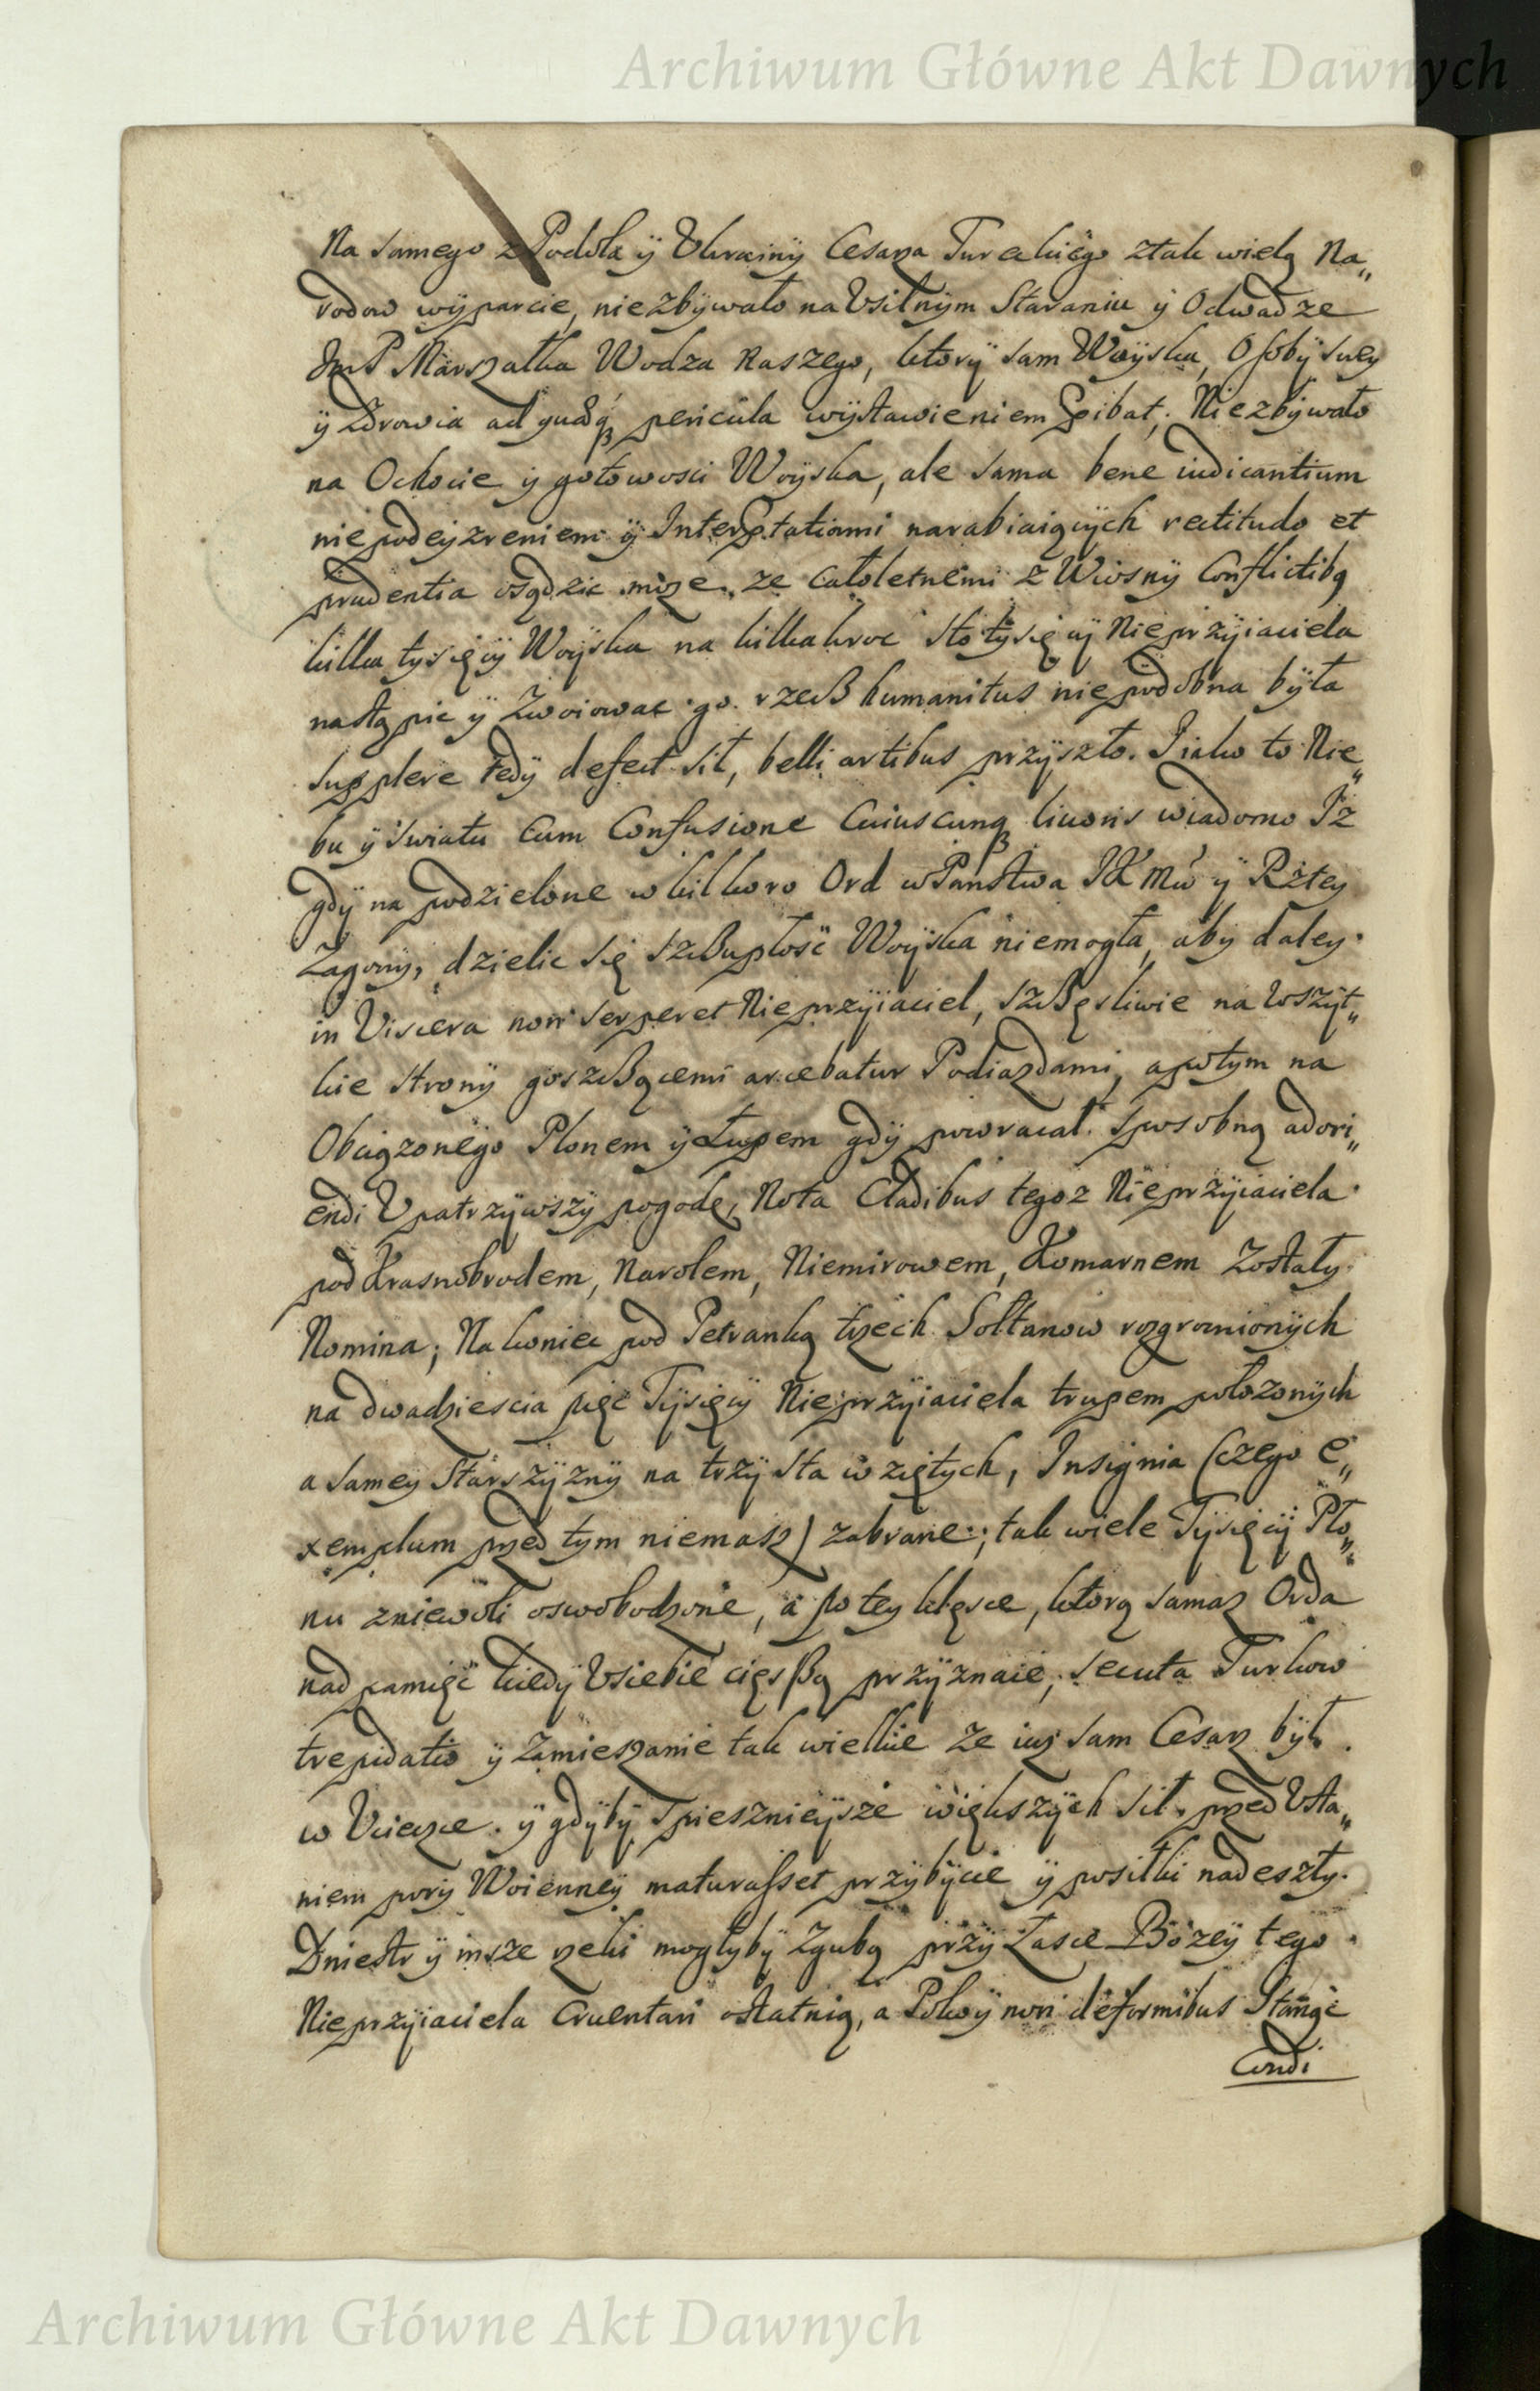 Archiwum Główne Akt Dawnych
Na samego z Podola ÿ Ukrainÿ Cesarza Tureckiego z tak wielą Na„
rodow wyparcie, niezbÿwało na Usilnÿm Staraniu ÿ Odwadze
ImP Marszałka Wodza Naszego, ktorÿ sam Woÿska, Osobÿ swey
ÿ Zdrowia ad quæq3 pericula wÿstawieniem; Niezbÿwało
na Ochocie ÿ gotowosci Woÿska, ale sama bene iudicantium
niepodeyzreniem ÿ narabiaiącÿch rectitudo et
prudentia osądzic może, ze całoletnemi z Wiosnÿ Conflictibq
kilka tysięcÿ Woÿska na kilkakroc sto tÿsięcÿ Nieprzÿiaciela
nastąpic ÿ Zwoiowac go rzecß humanitus niepodobna bÿła
supplere tedÿ defect sił, belli artibus przÿszło. Iako to Nie„
bu ÿ swiatu cum Confusione Cuiuscunq3 livoris wiadomo Iz
gdÿ na podzielone w kilkoro Ord w Panstwa JKMci ÿ Rzltey
Zagonÿ, dzielic się szcßupłosc Woÿska niemogła, aby daley
in Viscera non serperet Nieprzÿiaciel, szcßęsliwie na wszÿt„
kie stronÿ goszcßącemi arcebatur Podiazdami, a potym na
Obciązonego Plonem ÿ Łupem gdÿ powracał sposobną adori„
endi Upatrzÿwszÿ pogodę, Nota Cladibus tegoz Nieprzÿiaciela
pod Krasnobrodem, Narolem, Niemirowem, Komarnem Zostałÿ
Nomina; Nakoniec pod Petranką trzech Sołtanow rozgromionÿch
na dwadziescia pięc Tÿsięcÿ Nieprzÿiaciela trupem położonÿch
a samey Starszÿznÿ na trzÿ sta wziętych, Insignia (czego e„
xemplum przed tym niemasz) zabrane; tak wiele Tÿsięcÿ Plo„
nu z niewoli oswobodzone, a po tey klęsce, ktorą samaz Orda
nad pamięc kiedÿ Usiebie cięsßą przÿznaie, secuta Turkow
trepidatio ÿ Zamieszanie tak wielkie ze iuz sam Cesarz bÿł
w Ucieczce. ÿ gdÿbÿ spiesznieÿsze większÿch sił przed Usta„
niem porÿ Woienneÿ maturasset przÿbÿcie ÿ posiłki nadeszłÿ.
Dniestr ÿ insze rzeki mogłÿbÿ Zgubą przÿ Łasce Bozeÿ tego
Nieprzÿiaciela cruentari ostatnią, a Pokoÿ non deformibus Stanąc
Condi
Archiwum Główne Akt Dawnych